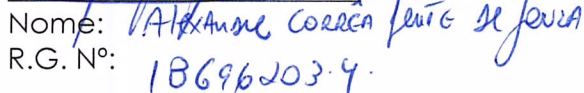 Nome: Alexandre Corrêa Leite de Souza
R.G. Nº: 18696203-4.